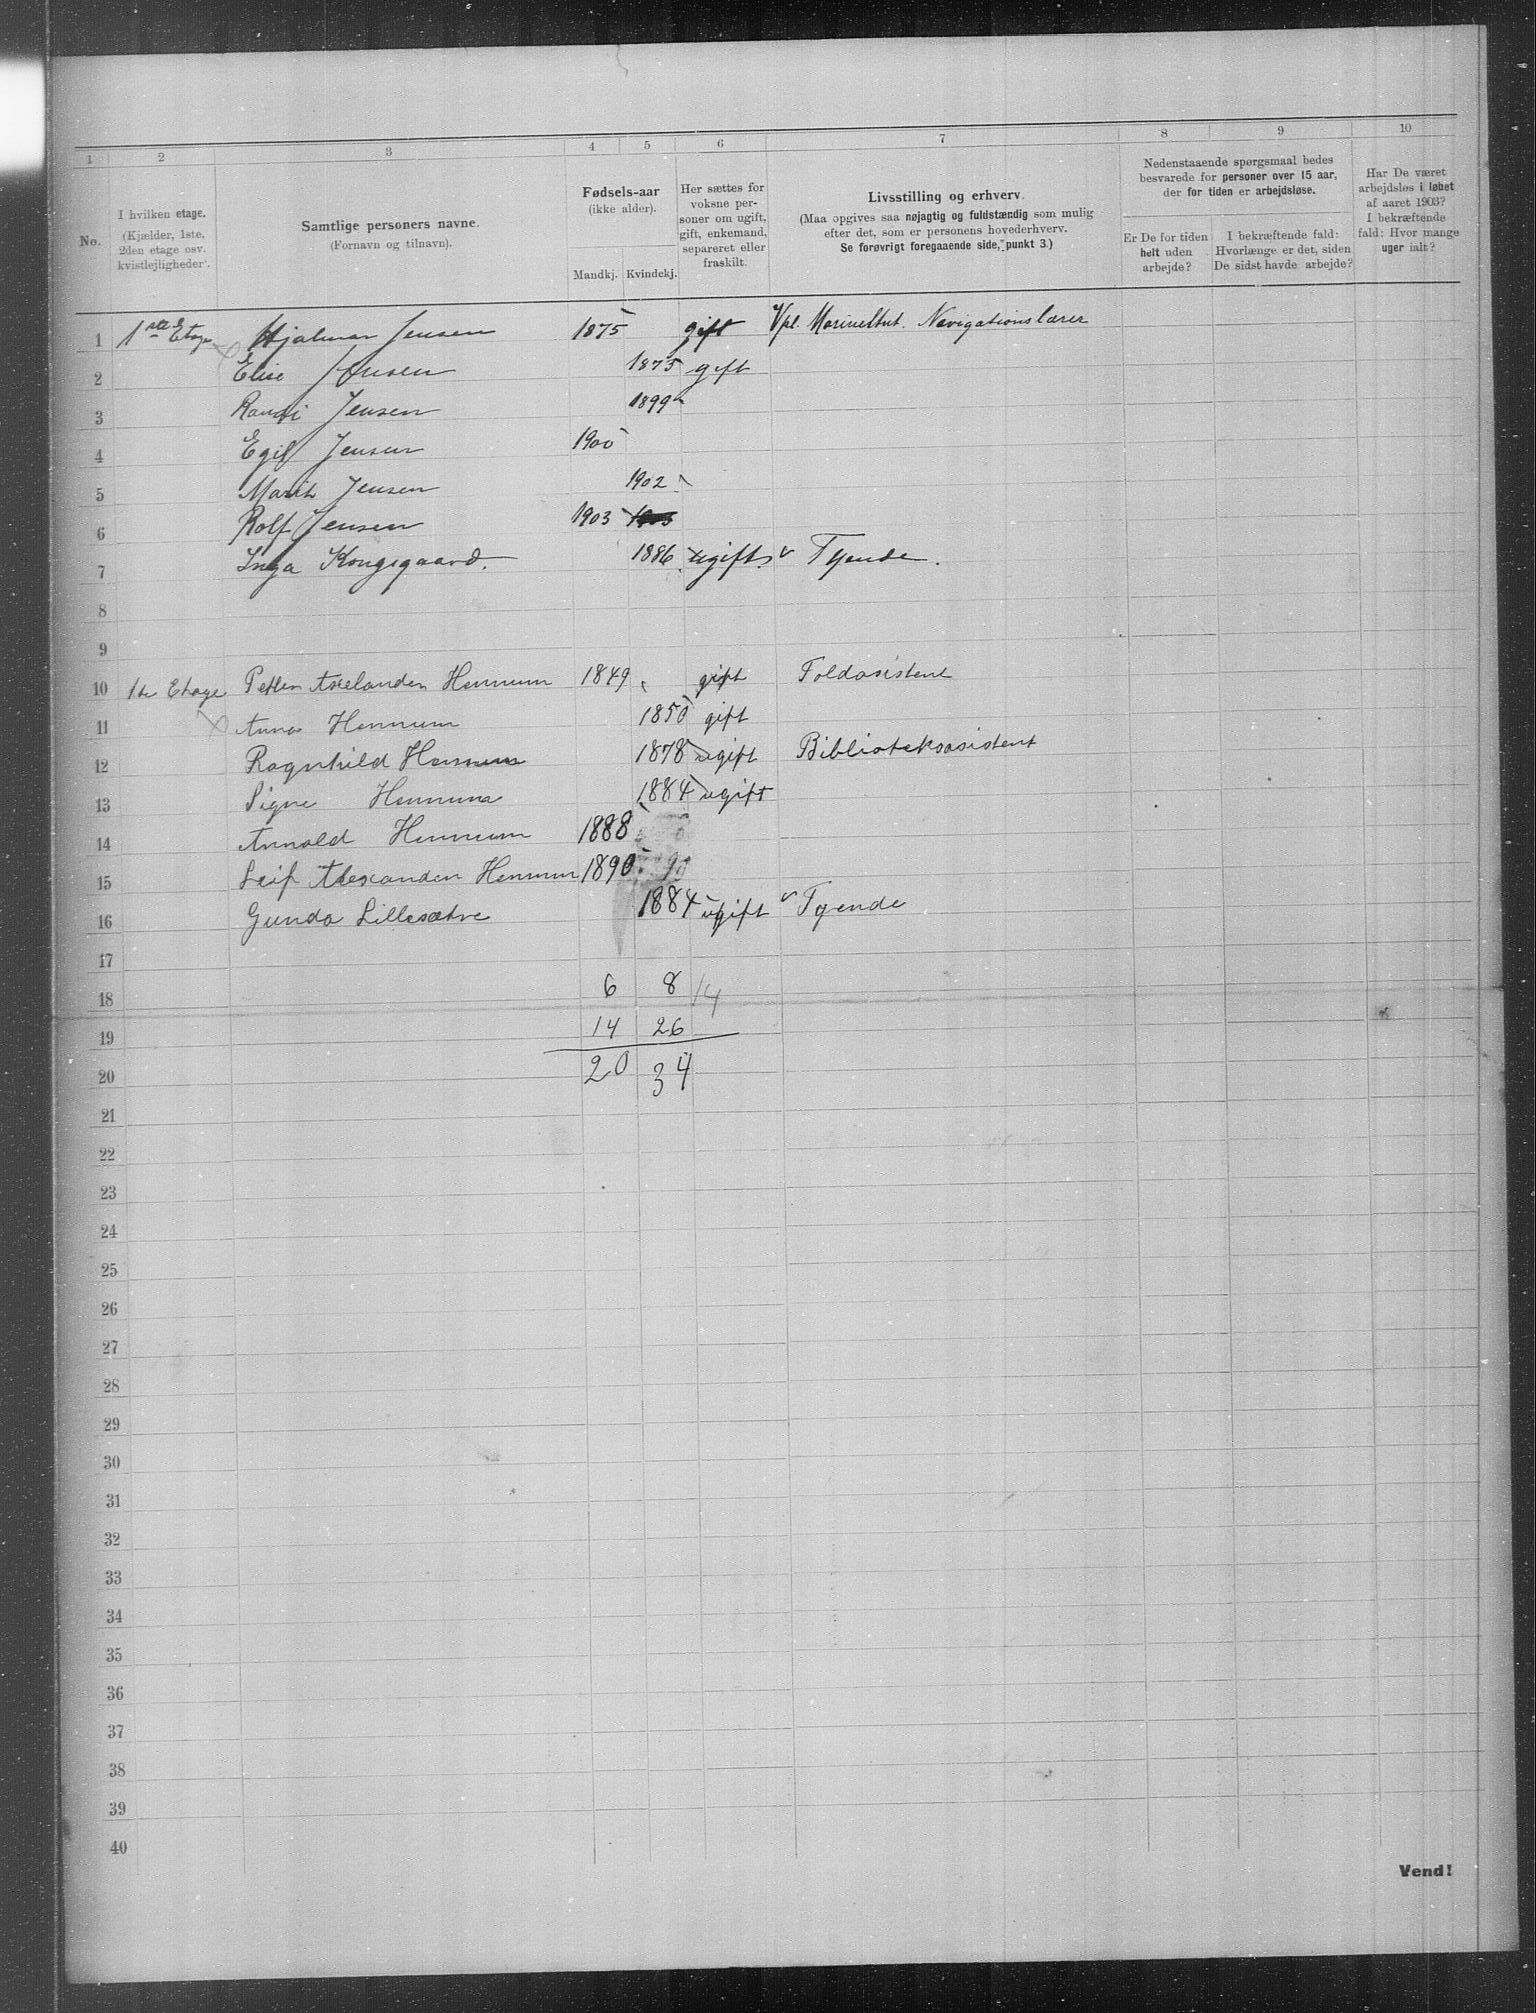 1 2 3 4 5 6 7 8 9 10
No.
I hvilken etage.
(Kjælder, 1ste,
2den etage osv.
kvistlejligheder).
Samtlige personers navne.
(Fornavn og tilnavn).
Fødsels-aar
(ikke alder).
Mandkj. Kvindekj.
Her sættes for
voksne per-
soner om ugift,
gift, enkemand,
separeret eller
fraskilt.
Livsstilling og erhverv.
(Maa opgives saa nøjagtig og fuldstændig som mulig
efter det, som er personens hovederhverv.
Se forøvrigt foregaaende side, punkt 3.)
Nedenstaaende spørgsmaal bedes
besvarede for personer over 15 aar,
der for tiden er arbejdsløse.
Er De for tiden
helt uden
arbejde?
I bekræftende fald:
Hvorlænge er det, siden
De sidst havde arbejde?
Har De været
arbejdsløs i løbet
af aaret 1903?
I bekræftende
fald: Hvor mange
uger ialt?
1 1ste Etage Hjalmar Jensen 1875 gift Vpl. Navigationslærer
2 Elise Jensen 1875 gift
3 Randi Jensen 1899
4 Egil Jensen 1900
5 Marit Jensen 1902
6 Rolf Jensen 1903
7 Inga Kongsgaard. 1886 ugift Tyende.
8
9
10 1ste Etage Petter Hennum 1849 gift Toldasistent
11 Anna Hennum 1850 gift
12 Ragnhild Hennum 1878 ugift Biblioteksasistent
13 Signe Hennum 1884 ugift
14 Arnold Hennum 1888
15 Leif Alexander Hennum 1890
16 Gunda Lillesætre 1884 ugift Tyende
17
18 6 8 14
19 14 26
20 20 34
21
22
23
24
25
26
27
28
29
30
31
32
33
34
35
36
37
38
39
40
Vend!